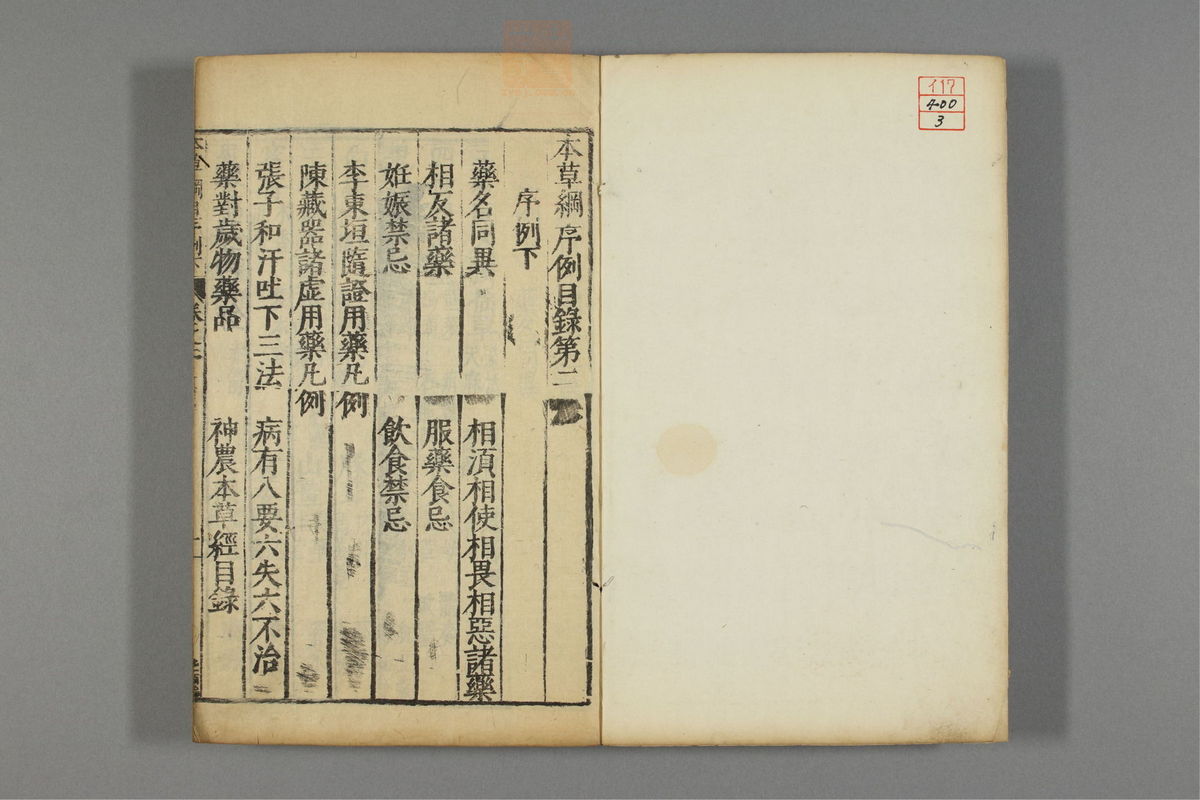 イ17
400
3
本草綱序例目錄第二
序例下
藥名同異
相須相使相畏相惡諸藥
相反諸藥
服藥食忌
妊娠禁忌
飲食禁忌
李東垣隨證用藥凡例
陳藏器諸虛用藥凡例
張子和汗吐下三法
病有八要六失六不治
藥對歲物藥品
神農本草經目錄